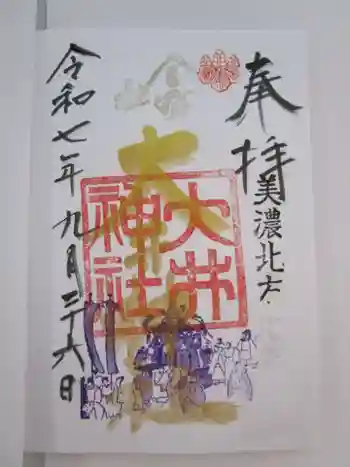 奉拝
美濃北方
大井神社
令和七年九月二十六日